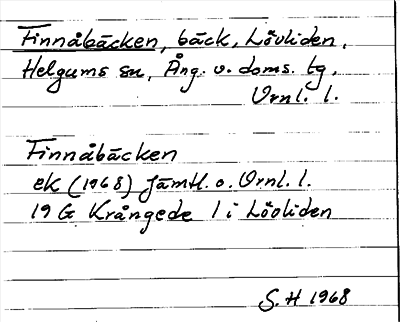 Finnåbäcken, bäck, Lövliden,
Helgums sn, Ång. v. doms. tg,
Vrnl. l.
Finnåbäcken
ek (1968) Jämtl. o. Vrnl. l.
19 G Krångede 1 i Lövliden
S. H 1968